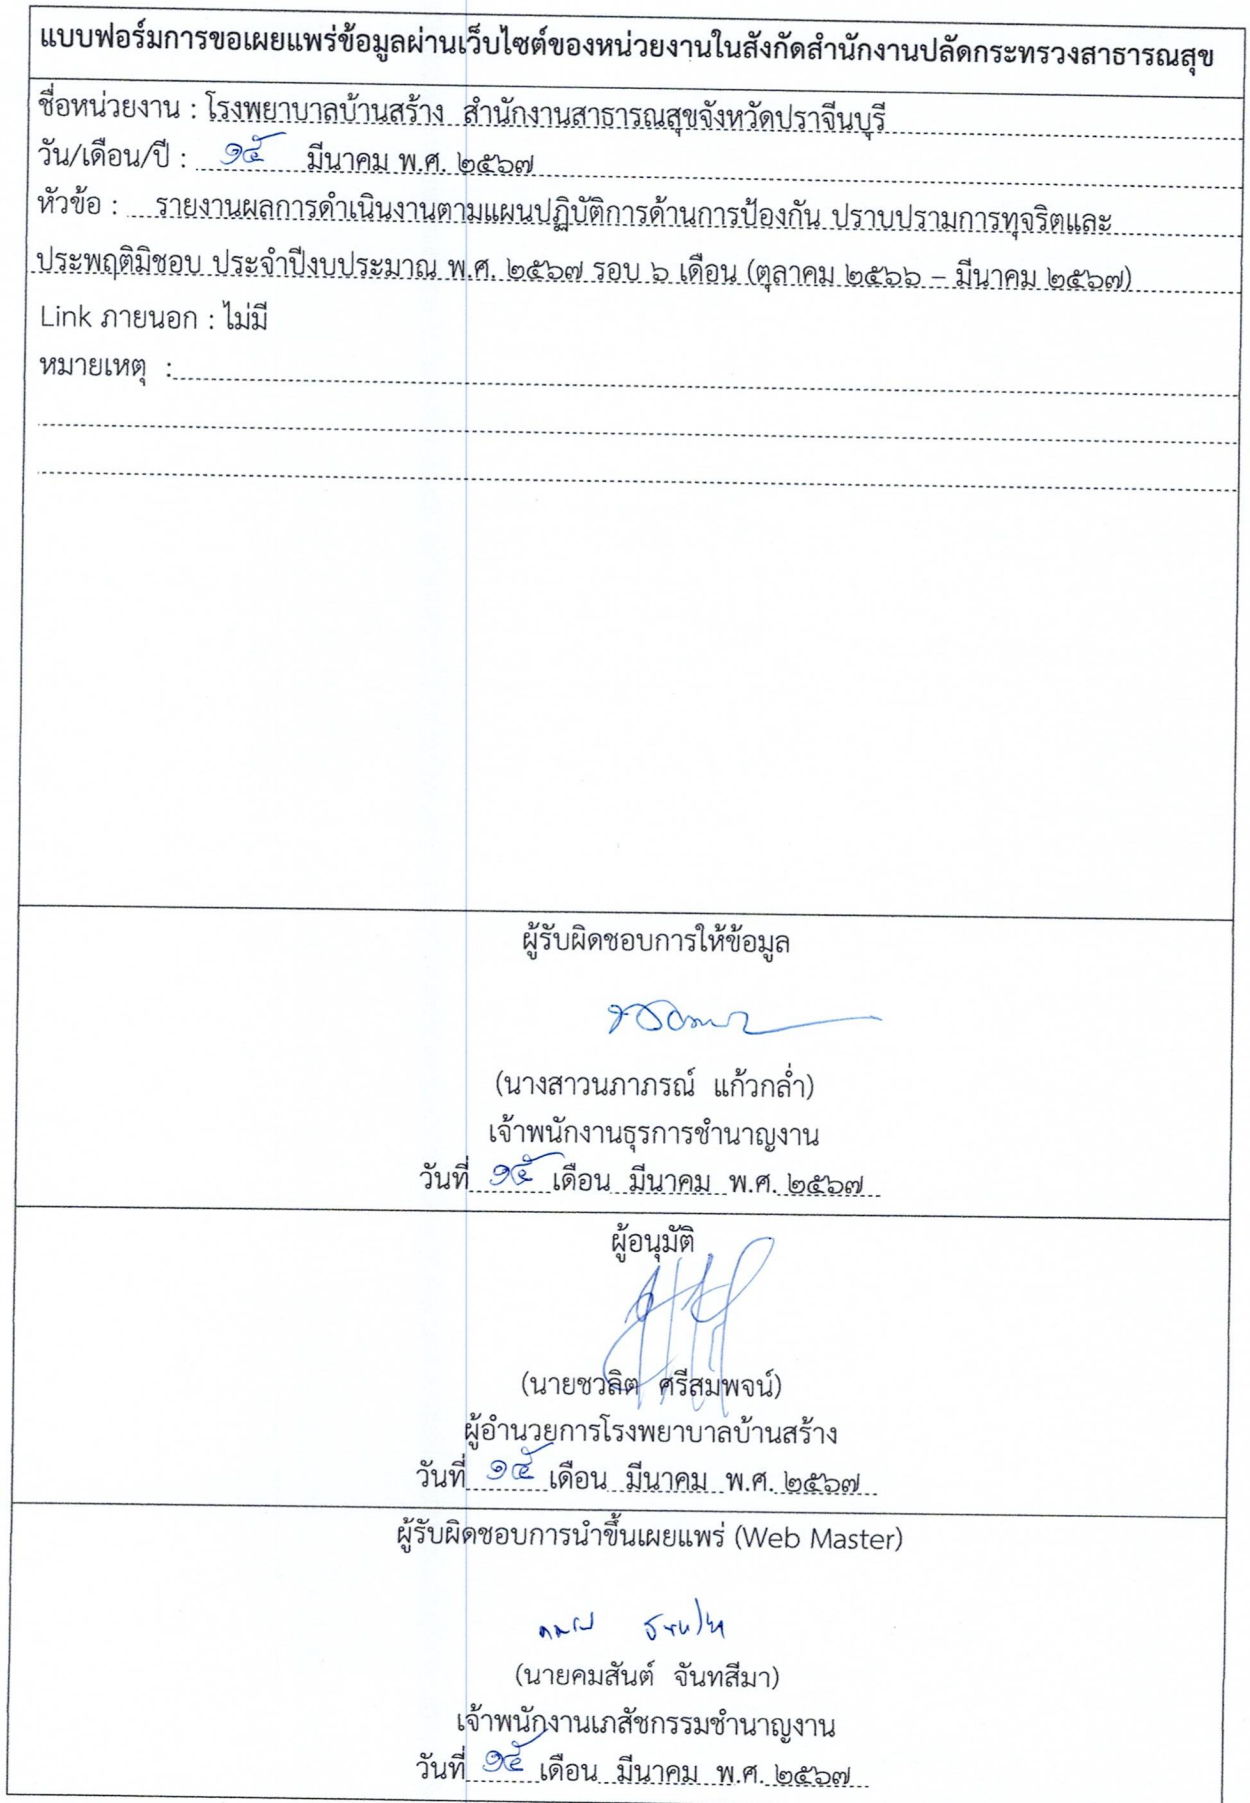 แบบฟอร์มการขอเผยแพร่ข้อมูลผ่านเว็บไซต์ของหน่วยงานในสังกัดสำนักงานปลัดกระทรวงสาธารณสุข
ชื่อหน่วยงาน : โรงพยาบาลบ้านสร้าง สำนักงานสาธารณสุขจังหวัดปราจีนบุรี
วัน/เดือน/ปี : ๑๕ มีนาคม พ.ศ. ๒๕๖๗
หัวข้อ : รายงานผลการดำเนินงานตามแผนปฏิบัติการด้านการป้องกัน ปราบปรามการทุจริตและ
ประพฤติมิชอบ ประจำปีงบประมาณ พ.ศ. ๒๕๖๗ รอบ ๖ เดือน (ตุลาคม ๒๕๖๖ – มีนาคม ๒๕๖๗)
Link ภายนอก : ไม่มี
หมายเหตุ :
ผู้รับผิดชอบการให้ข้อมูล
(นางสาวนภาภรณ์ แก้วกล่ำ)
เจ้าพนักงานธุรการชำนาญงาน
วันที่ ๑๕ เดือน มีนาคม พ.ศ. ๒๕๖๗
ผู้อนุมัติ
(นายชวลิต ศรีสมพจน์)
ผู้อำนวยการโรงพยาบาลบ้านสร้าง
วันที่ ๑๕ เดือน มีนาคม พ.ศ. ๒๕๖๗
ผู้รับผิดชอบการนำขึ้นเผยแพร่ (Web Master)
(นายคมสันต์ จันทสีมา)
เจ้าพนักงานเภสัชกรรมชำนาญงาน
วันที่ ๑๕ เดือน มีนาคม พ.ศ. ๒๕๖๗